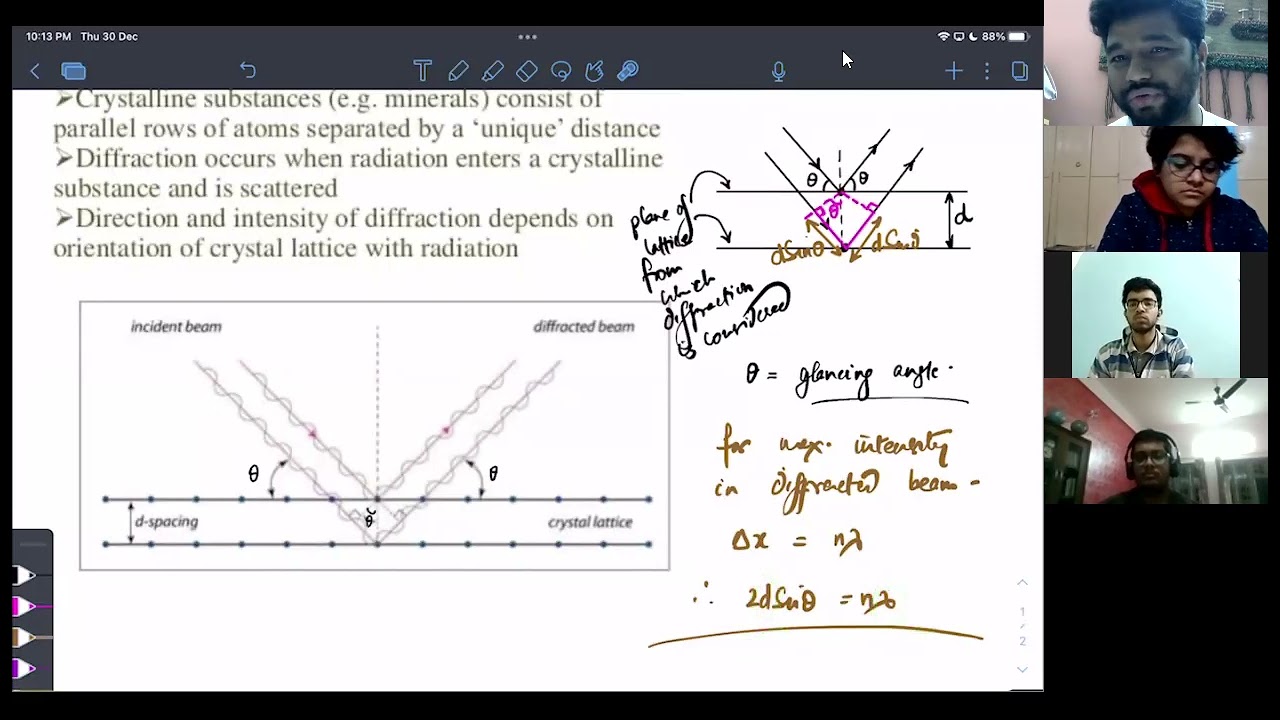 10:13 PM Thu 30 Dec
88%
➤Crystalline substances (e.g. minerals) consist of
parallel rows of atoms separated by a ‘unique’ distance
➤Diffraction occurs when radiation enters a crystalline
substance and is scattered
➤Direction and intensity of diffraction depends on
orientation of crystal lattice with radiation
incident beam
diffracted beam
θ
θ
d-spacing
θ
crystal lattice
θ θ
θ
d
dSinθ dSinθ
plane of
lattice
from
which
diffraction
is considered
θ = glancing angle.
for max. intensity
in diffracted beam.
Δx = nλ
∴ 2dSinθ = nλ
1
/
2